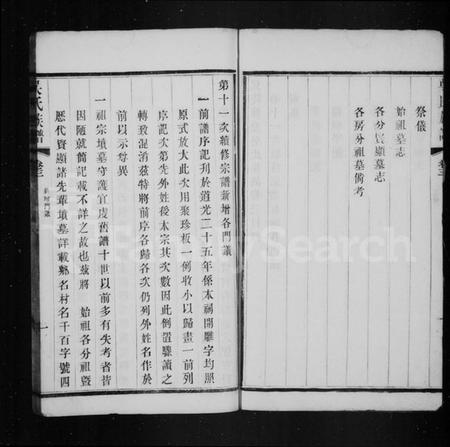 祭儀
始祖墓志
各分宦顯墓志
各房分祖墓備考
第十一次續修宗譜新增各門議
一前譜序記刋於道光二十五年係木祠開雕字均照
原式放大此次用聚珍板一例收小以歸盡一前列
序記次第先外姓後太宗其次數因此倒置驟讀之
轉致混淆茲特將前序各歸各次仍列外姓名作於
前以示尊異
一祖宗墳墓守護宜虔舊譜十世以前多有失考者皆
因隨就簡記載不詳之故也茲將 始祖各分祖暨
歷代宦顯諸先輩墳墓詳載鄉名村名千百字號四
吳氏族譜 卷三 新增門議 一
FamilySearch